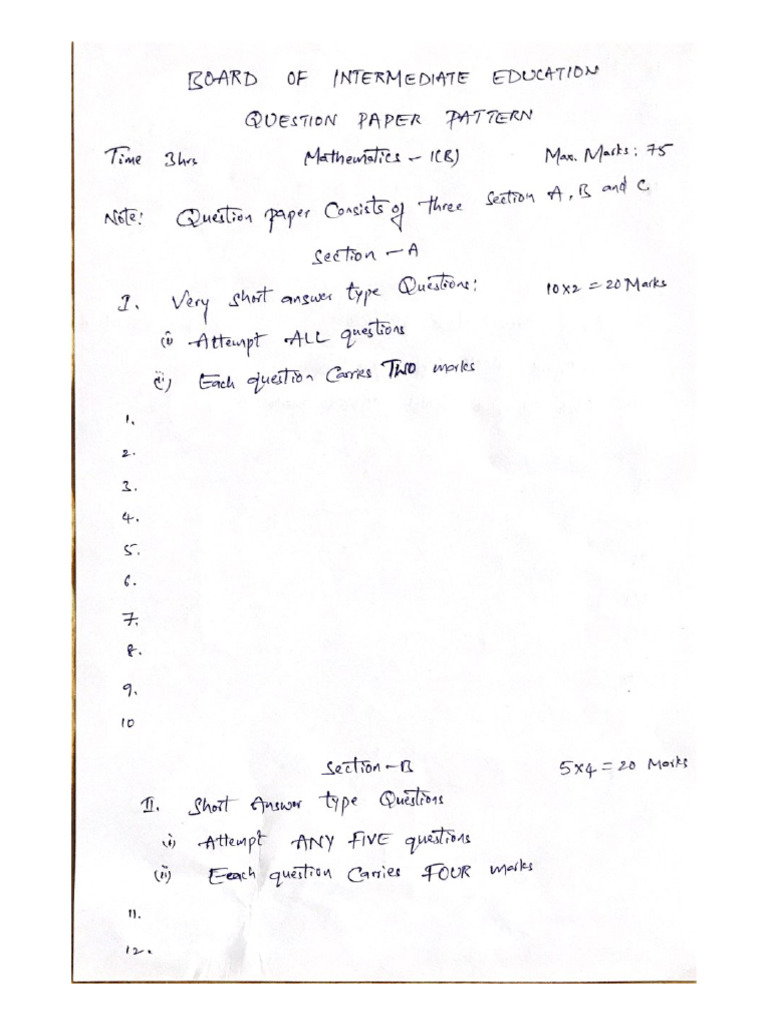 BOARD OF INTERMEDIATE EDUCATION
QUESTION PAPER PATTERN
Time 3hrs Mathematics - I(B) Max. Marks: 75
Note: Question paper Consists of three Section A, B and C
Section - A
I. Very short answer type Questions: 10x2 = 20 Marks
(i) Attempt ALL questions
(ii) Each question Carries TWO marks
1.
2.
3.
4.
5.
6.
7.
8.
9.
10
Section - B 5x4 = 20 Marks
II. Short Answer type Questions
(i) Attempt ANY FIVE questions
(ii) Eeach question Carries FOUR marks
11.
12.